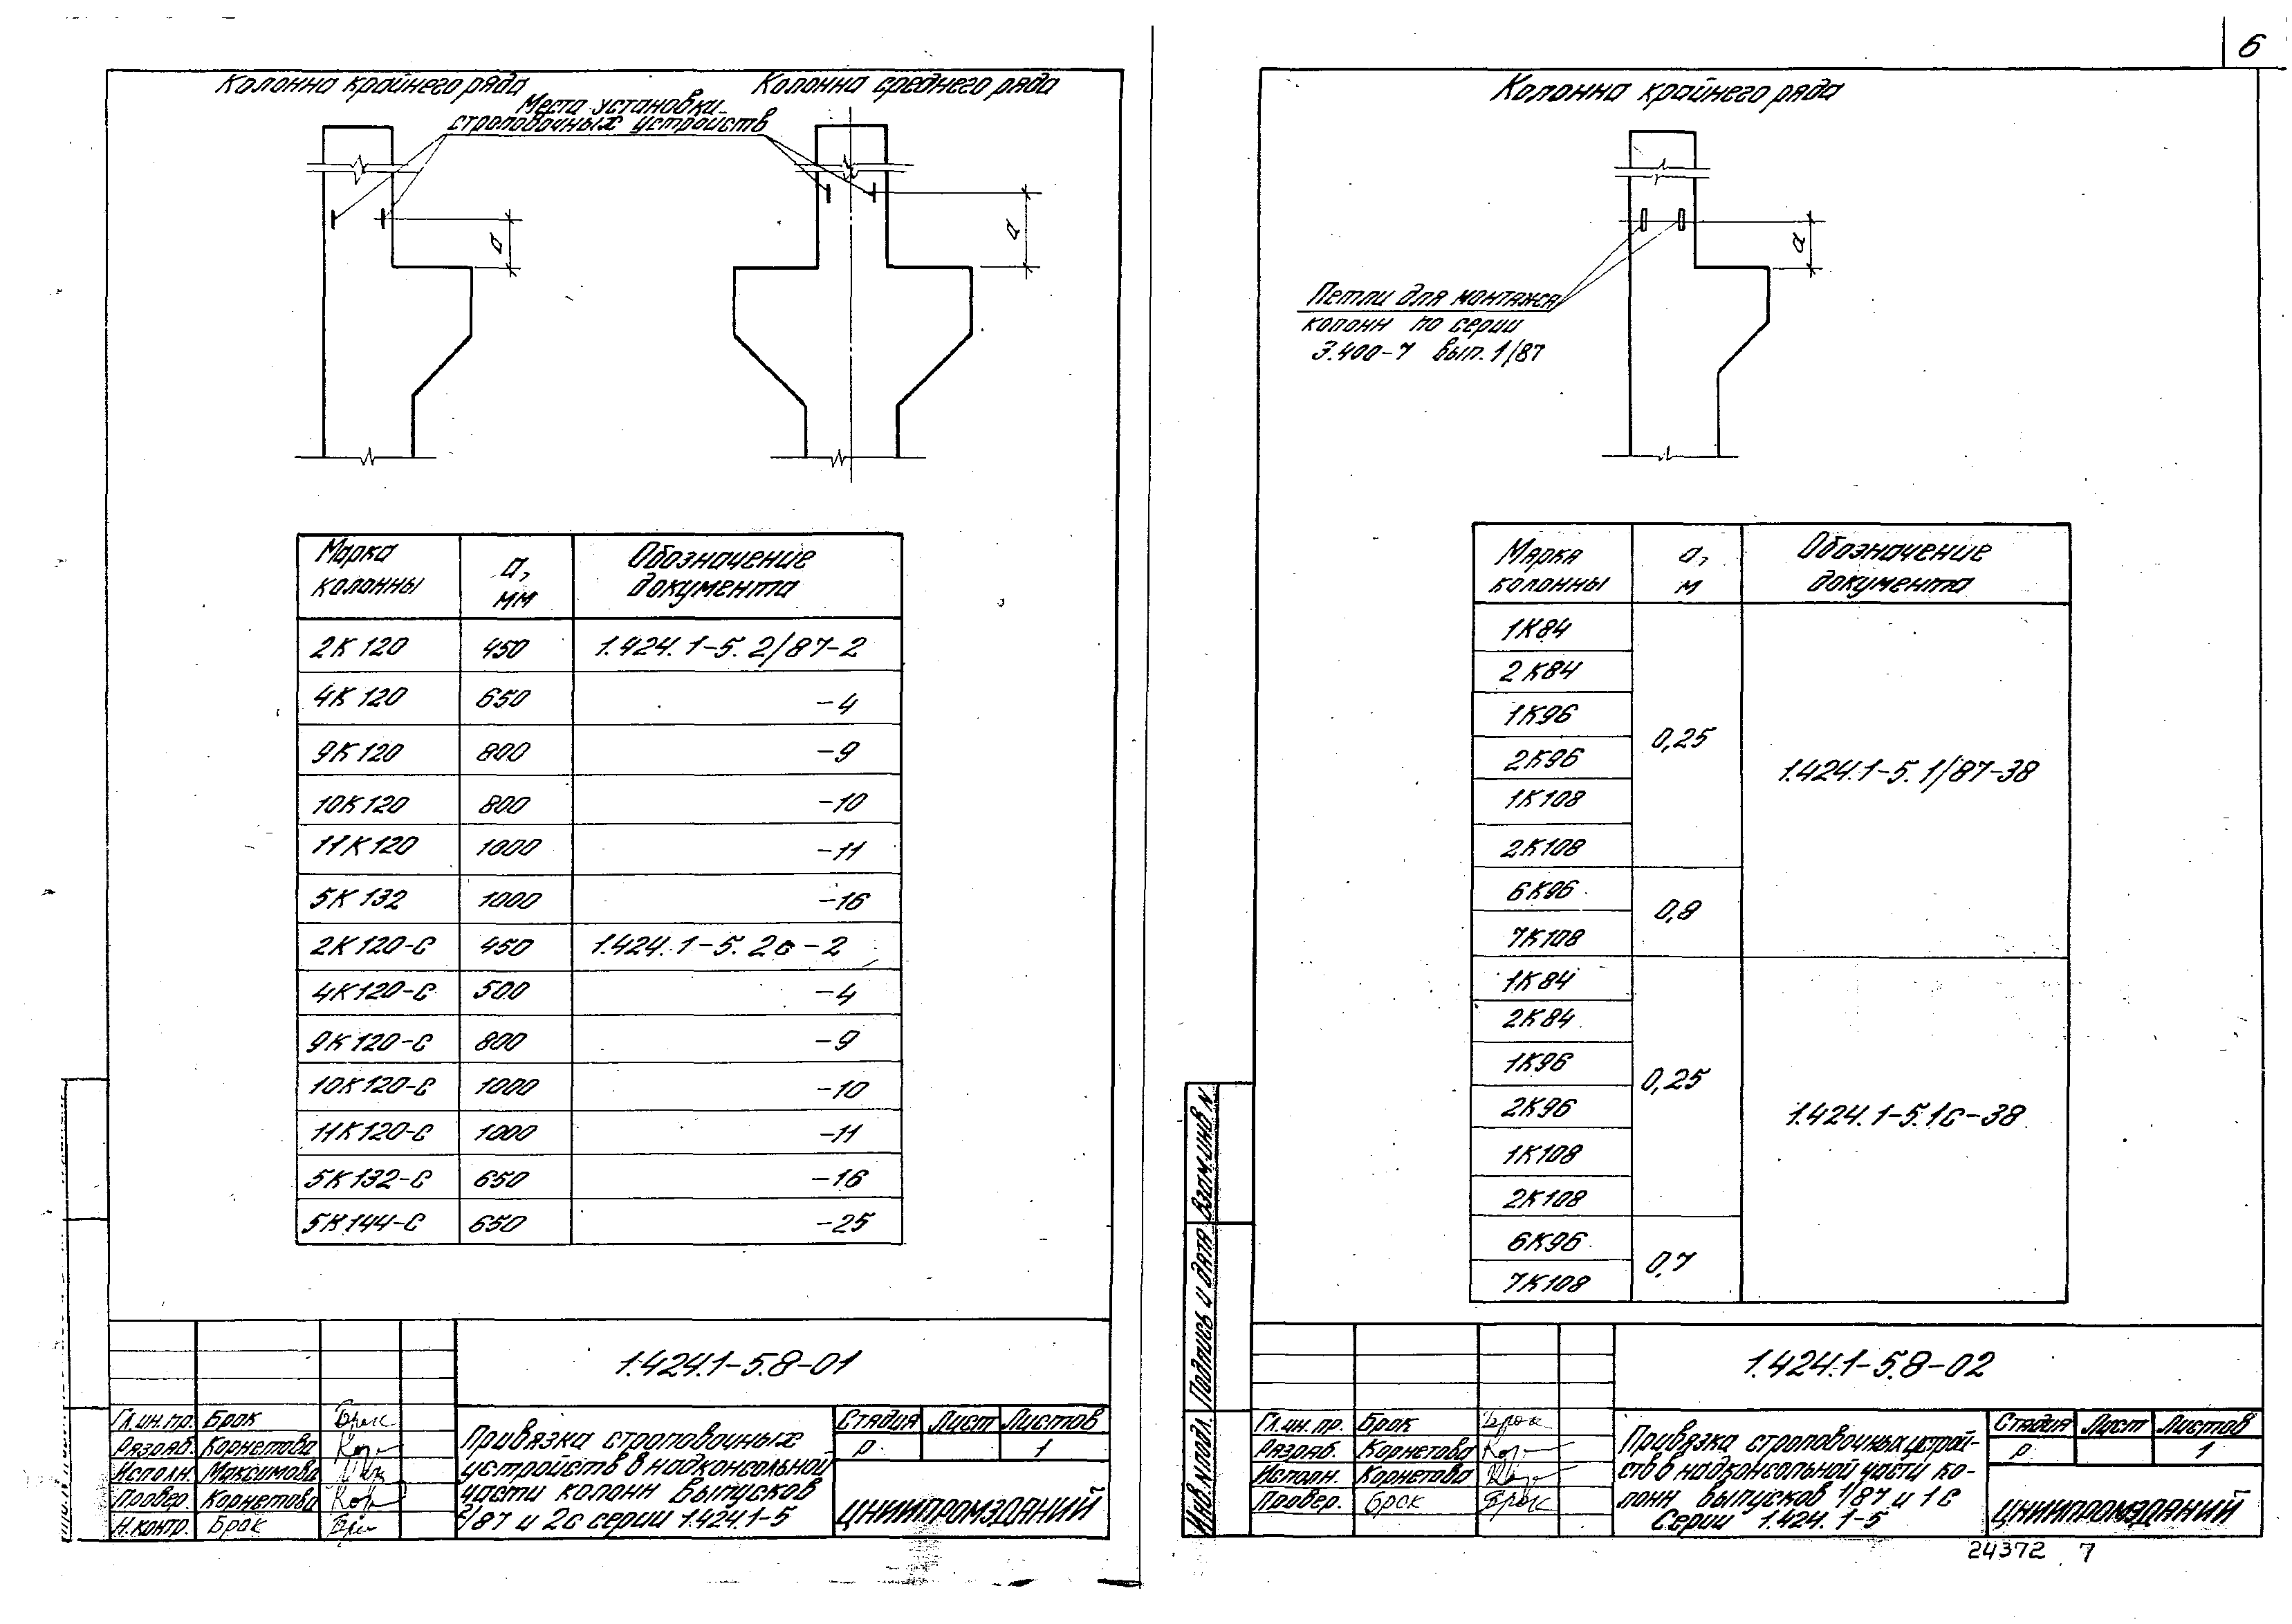 6
Колонна крайнего ряда
Колонна среднего ряда
Места установки
строповочных устройств
а
а
Марка колонны | а, мм | Обозначение документа
2К120 | 450 | 1.424.1-5.2/87-2
4К120 | 650 | -4
9К120 | 800 | -9
10К120 | 800 | -10
11К120 | 1000 | -11
5К132 | 1000 | -16
2К120-С | 450 | 1.424.1-5.2с-2
4К120-С | 500 | -4
9К120-С | 800 | -9
10К120-С | 1000 | -10
11К120-С | 1000 | -11
5К132-С | 650 | -16
5К144-С | 650 | -25
1.424.1-5.8-01
Гл.ин.пр. Брок
Разраб. Корнетова
Исполн. Максимова
Провер. Корнетова
Н.контр. Брок
Привязка строповочных
устройств в надконсольной
части колонн выпусков
2/87 и 2с серии 1.424.1-5
Стадия Лист Листов
Р 1
ЦНИИПРОМЗДАНИЙ
Колонна крайнего ряда
а
Петли для монтажа
колонн по серии
3.400-7 вып. 1/87
Марка колонны | а, м | Обозначение документа
1К84
2К84
1К96
0,25
2К96
1.424.1-5.1/87-38
1К108
2К108
6К96
0,8
7К108
1К84
2К84
1К96
0,25
2К96
1.424.1-5.1с-38
1К108
2К108
6К96
0,7
7К108
Взам.инв.N
Подпись и дата
Инв.N подл.
1.424.1-5.8-02
Гл.ин.пр. Брок
Разраб. Корнетова
Исполн. Корнетова
Провер. Брок
Привязка строповочных устрой-
ств в надконсольной части ко-
лонн выпусков 1/87 и 1с
Серии 1.424.1-5
Стадия Лист Листов
Р 1
ЦНИИПРОМЗДАНИЙ
24372 7